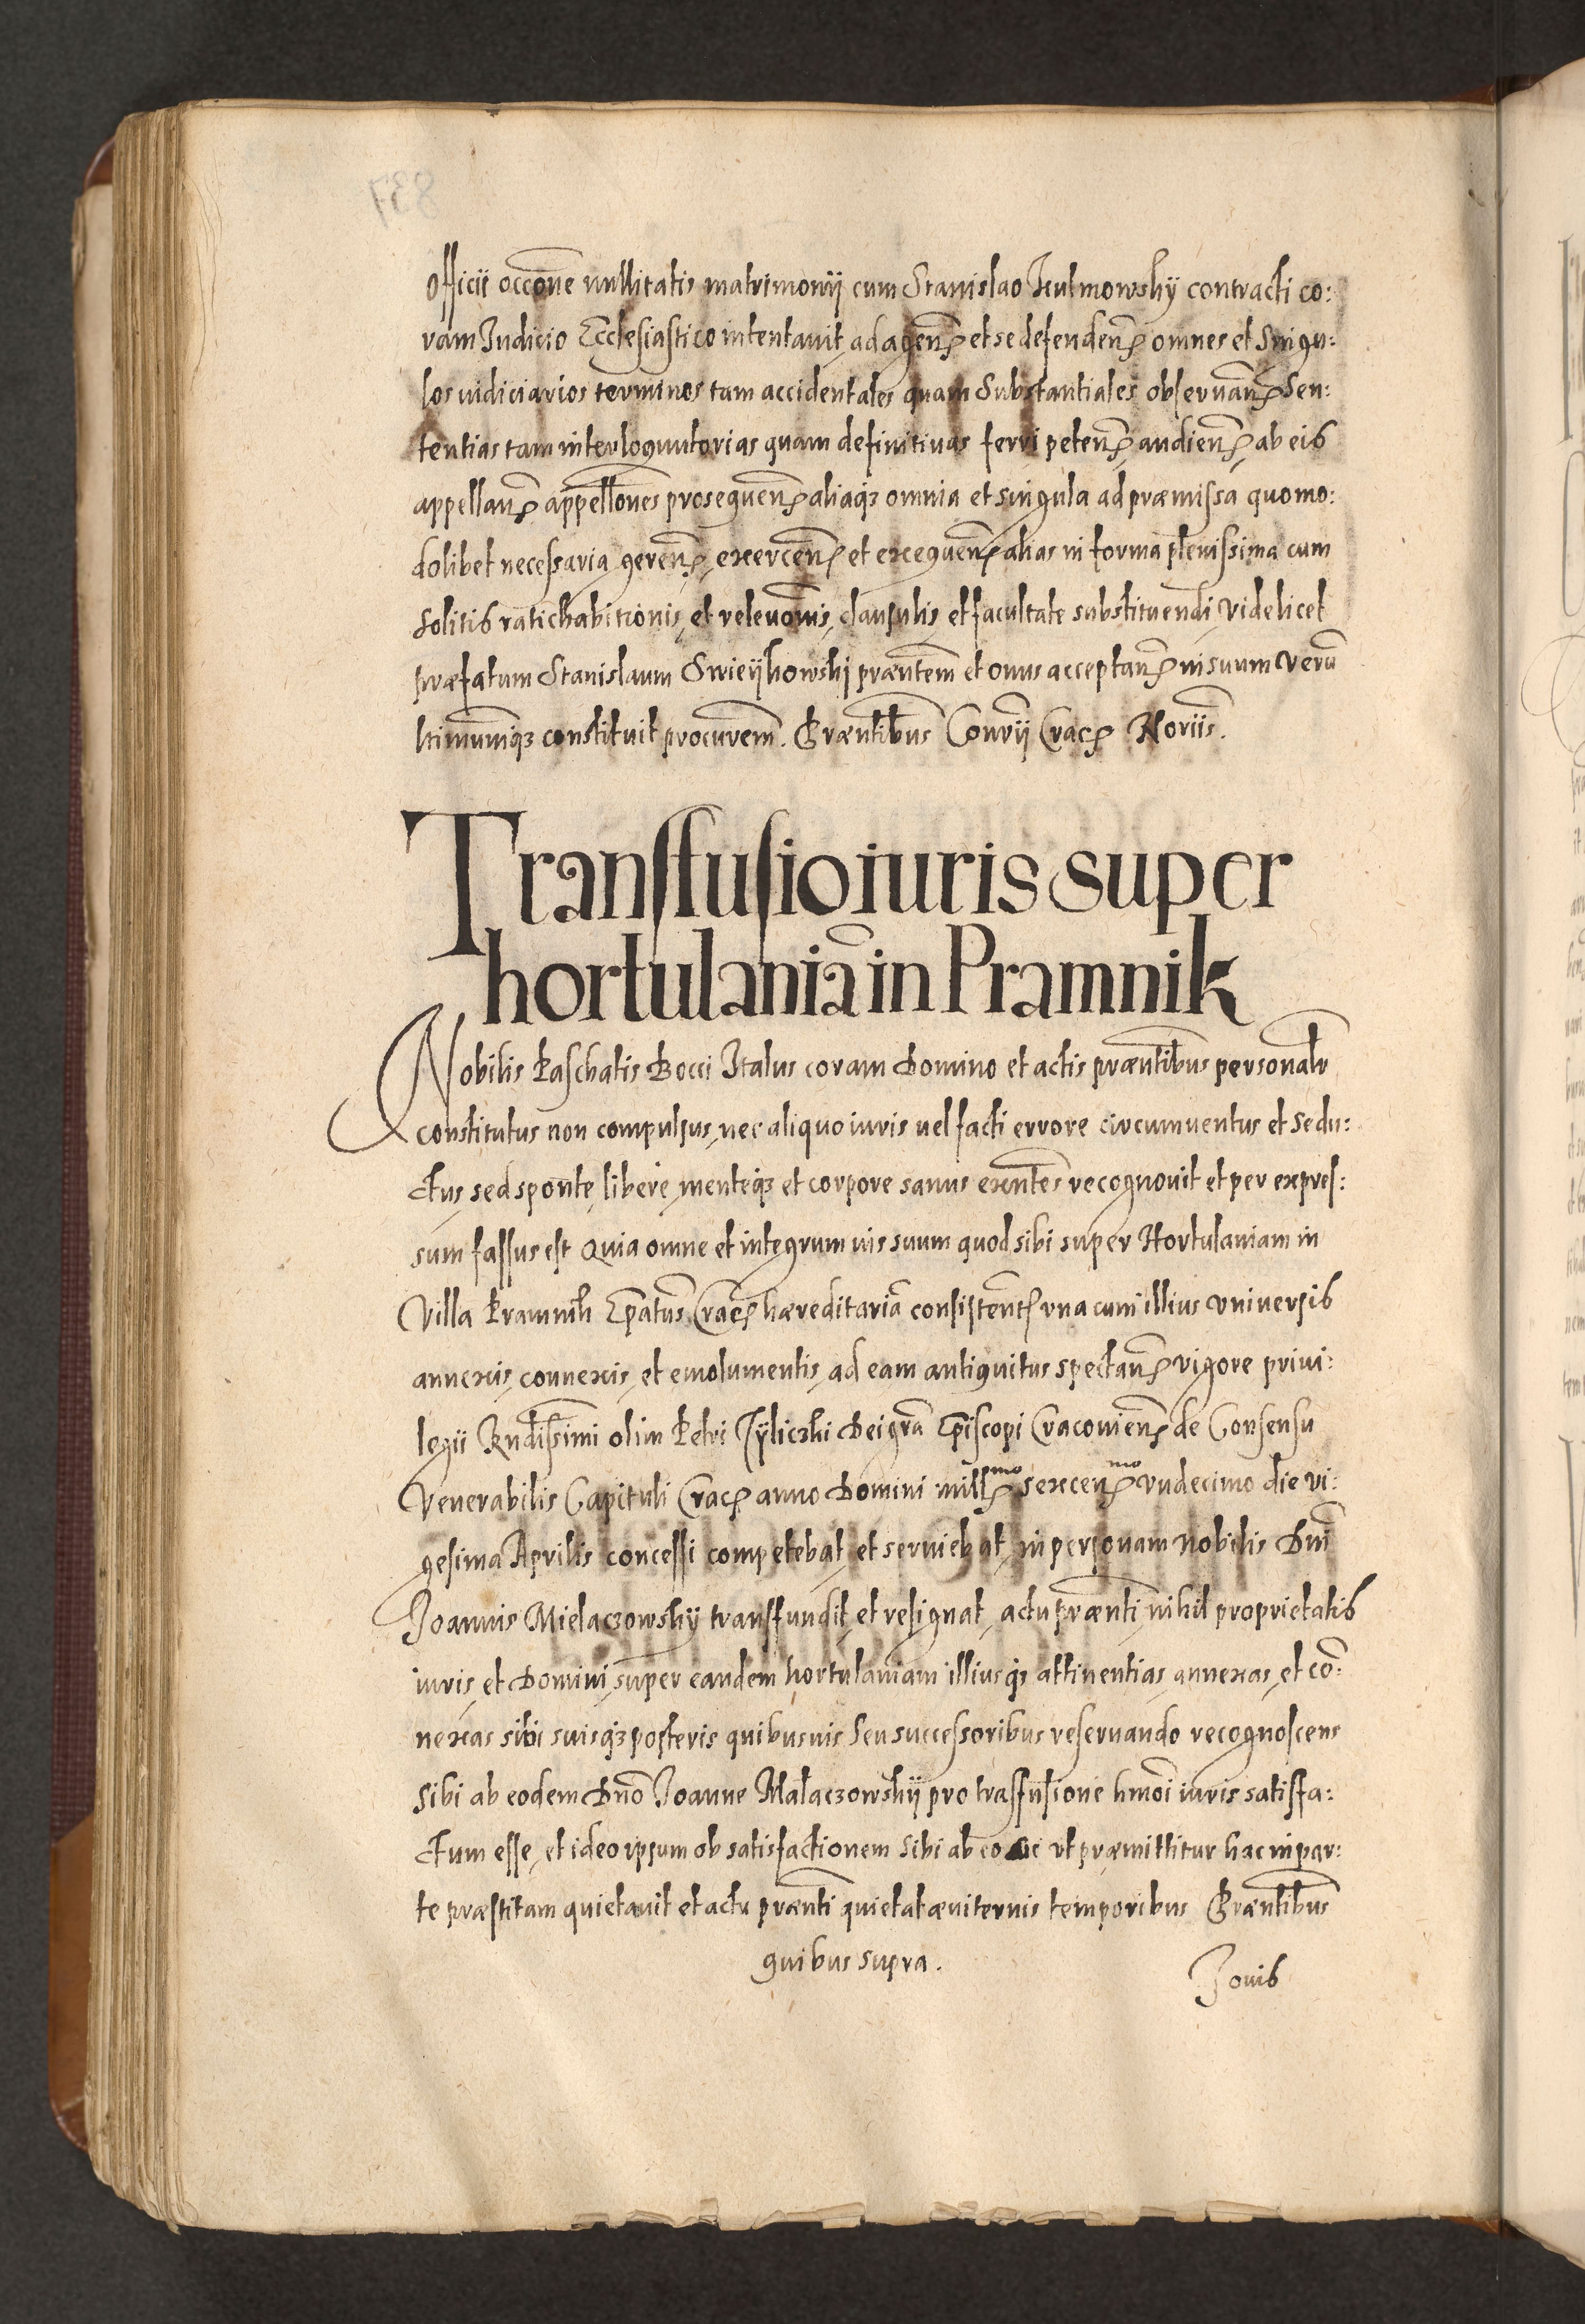 officii occōne nullitatis matrimonij cum Stanislao Kulmowsky contracti co:
ram Iudicio Ecclesiastico intentauit, ad agenꝝ et se defendenꝝ omnes et singu:
los iudiciarios terminos tam accidentales quam Substantiales obseruanꝝ Sen:
tentias tam interloquutorias quam definitiuas ferri petenꝝ, audienꝝ, ab eis
appellanꝝ appellōnes prosequenꝝ aliaqꝫ omnia et singula ad præmissa quomo:
dolibet necessaria gerenꝝ, exercenꝝ et exequenꝝ alias in forma plenissima cum
solitis ratihabitionis, et releuōnis, clausulis, et facultate substituendi, videlicet
præfatum Stanislaum Swieykowski præntem et onus acceptanꝝ in suum verū
ltimumqꝫ constituit procurem̄. Præntibus Conrij Cracꝝ Noriis.
Transfusio iuris super
hortulaniā in Pramnik
Nobilis Paschalis Bocci Italus coram Domino et actis præntibus personalr
constitutus non compulsus, nec aliquo iuris uel facti errore circumuentus et sedu:
ctus, sed sponte, libere, menteqꝫ et corpore sanus exn̄tes recognouit et per expres:
sum fassus est Quia omne et integrum ius suum quod sibi super Hortulaniam in
Villa Pramnik Ep̄atus Cracꝝ hæreditariā consistentꝝ vna cum illius vniuersis
annexis, connexis, et emolumentis, ad eam antiquitus spectanꝝ vigore priui:
legij Rndissimi olim Petri Tyliczki Dei grā Ep̄iscopi Cracouienꝝ de Consensu
Venerabilis Capituli Cracꝝ anno Domini millꝝmo sexcenꝝmo vndecimo die vi:
gesima Aprilis concessi competebat, et seruiebat, in personam Nobilis Dn̄i
Joannis Mielaczowsky transfundit, et resignat, actu prænti nihil proprietatis
iuris, et Domini, super eandem hortulaniam illiusqꝫ attinentias, annexas, et cō:
nexas sibi suisqꝫ posteris quibusuis seu successoribus reseruando recognoscens
sibi ab eodem Dn̄o Joanne Małaczowskij pro trasfusione hmōi iuris satisfa:
ctum esse, et ideo ipsum ob satisfactionem sibi ab eo sic ut præmittitur hac in par:
te præstitam quietauit et actu prænti quietat æuiternis temporibus Præntibus
quibus supra.
Jouis